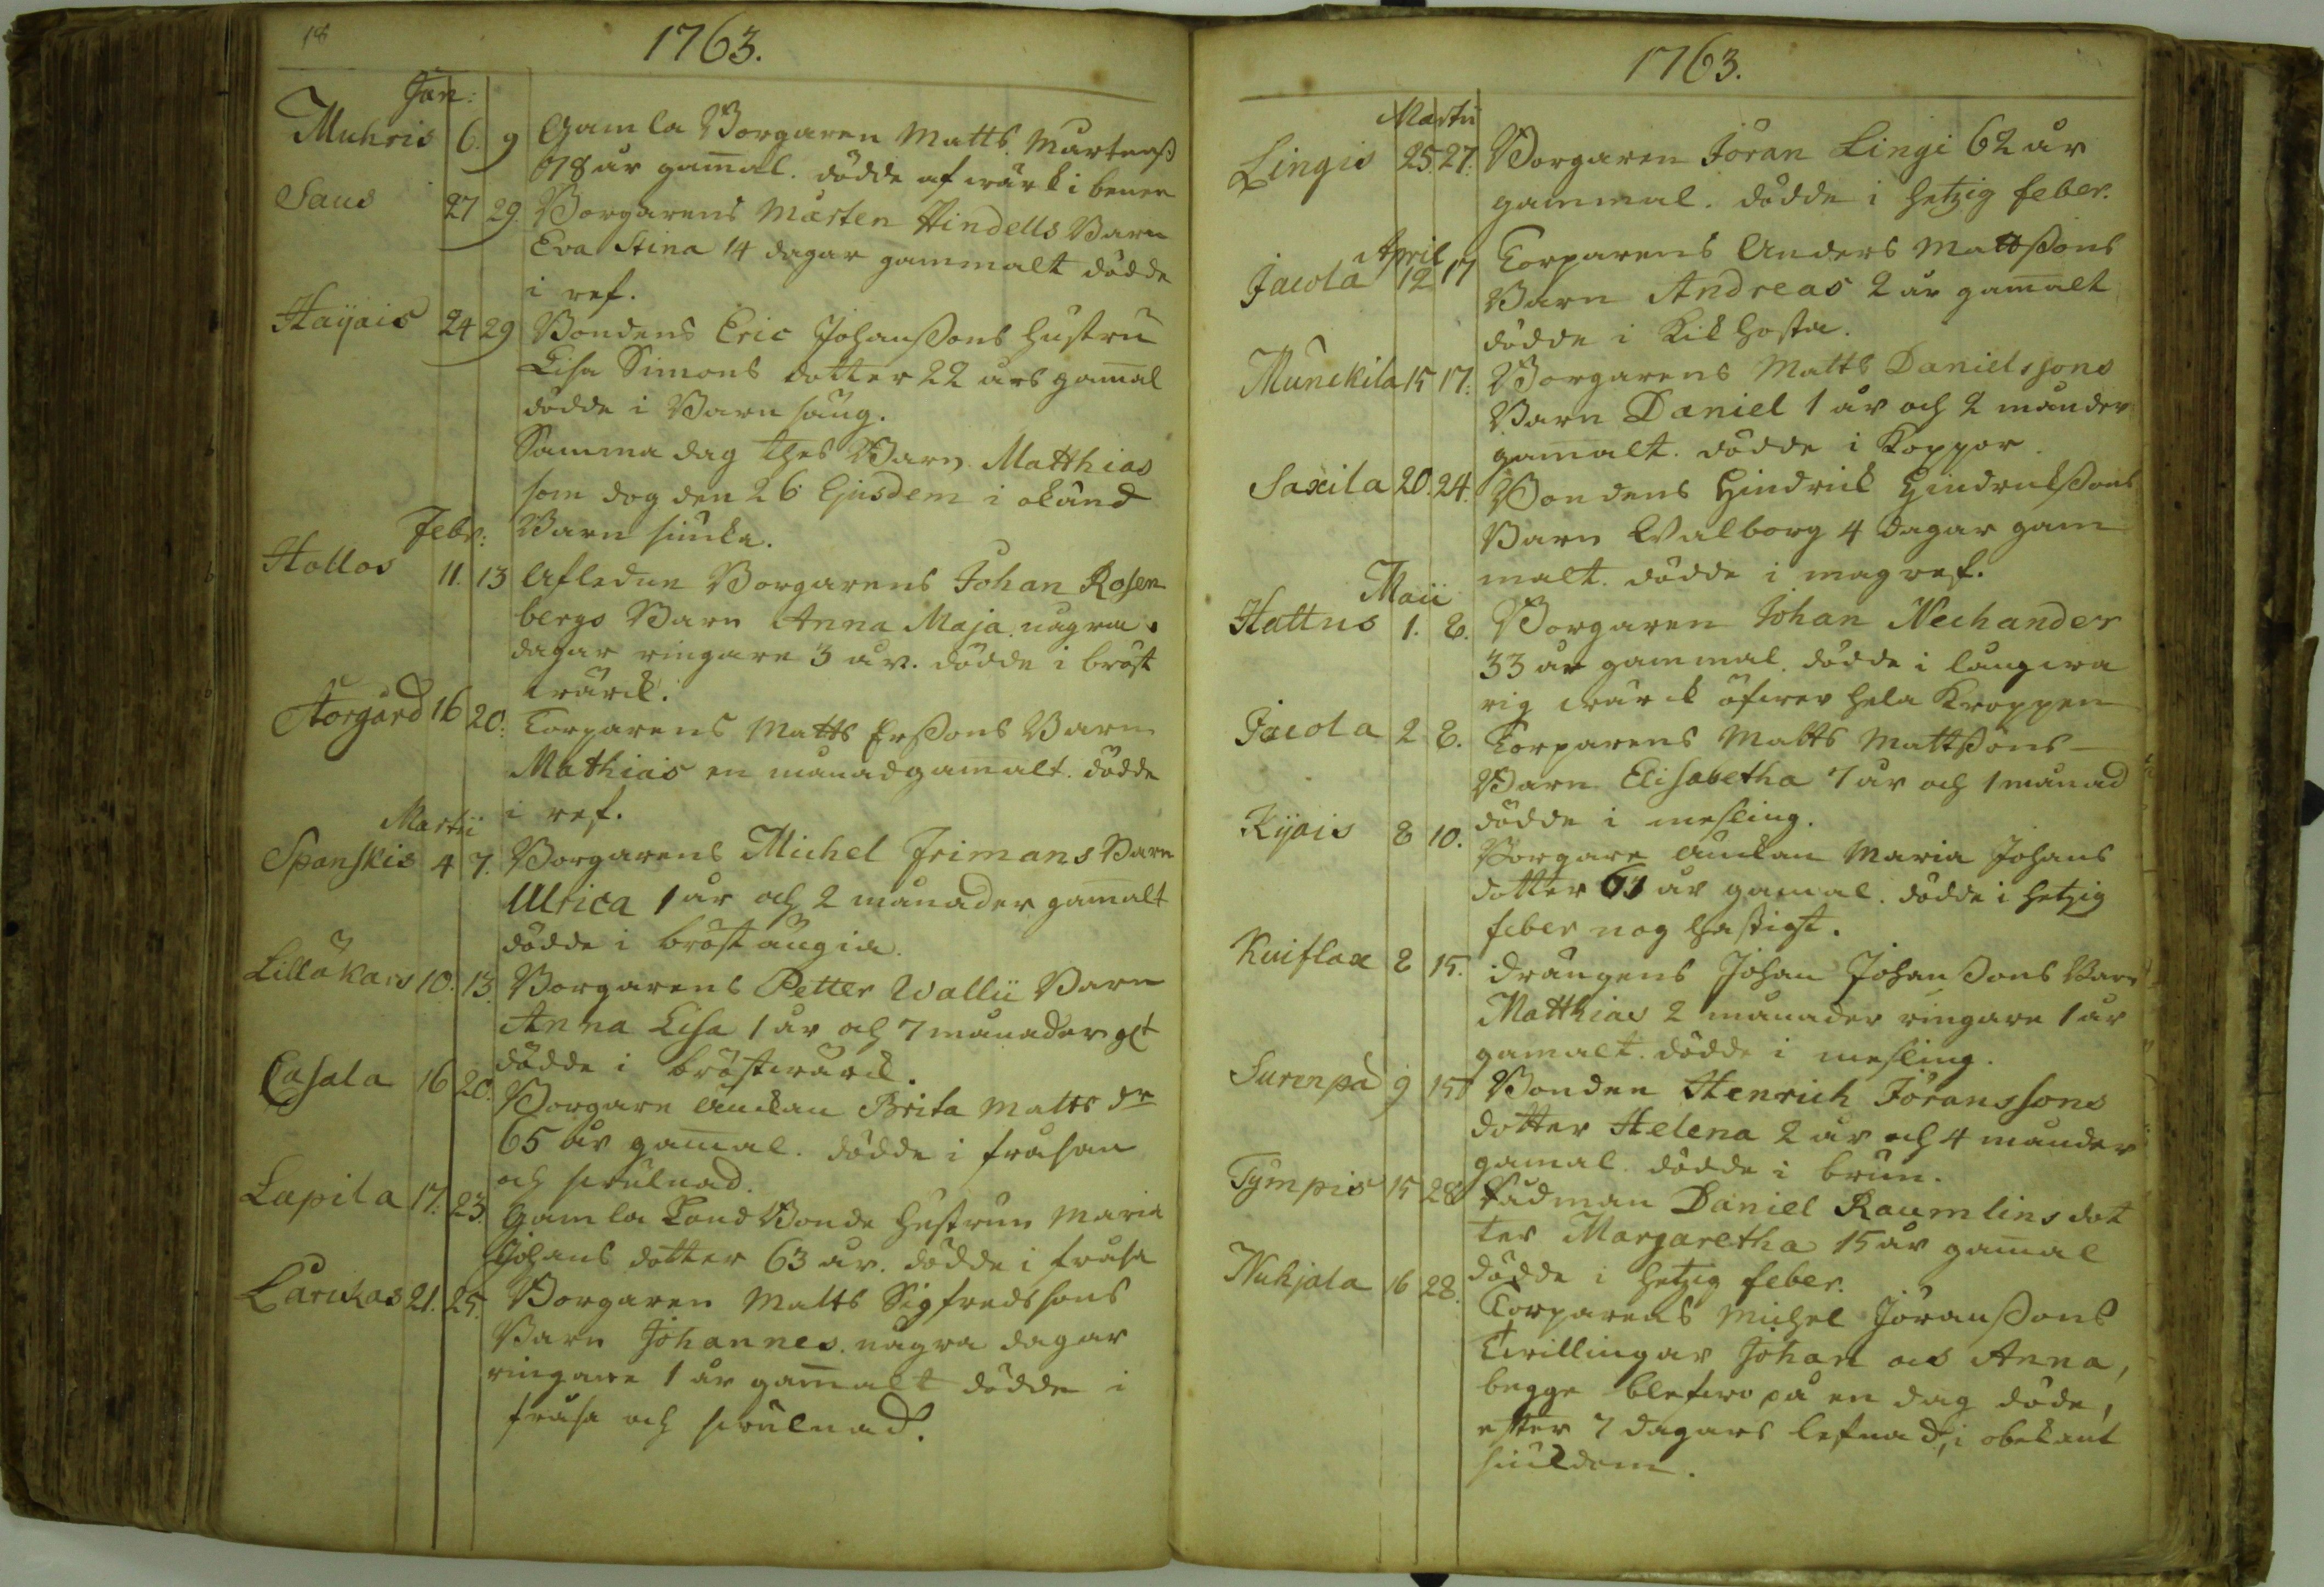 18
1763.
Jan:
Muhris 6. 9 Gamla Borgaren Matts Mårtenss
78 år gam̄al. dödde af wärk i benen
Saus 27 29. Borgarens Mårten Hindells Barn
Eva Stina 14 dagar gammalt dödde
i ref.
Häyäis 24 29 Bondens Eric Johanssons hustru
Lisa Simons dotter 22 års gam̄al
dödde i Barn säng.
Samma dag thes Barn Matthias
som dog den 26 Ejusdem i okänd
Barn siucka.
Febr:
Hollos 11. 13 Afledne Borgarens Johan Rosen
bergs Barn Anna Maja några
dagar ringare 3 år. dödde i bröst
wärck.
Storgård 16 20. Torparens Matts Erssons Barn
Mathias en månad gamalt. dödde
i ref.
Martii
Spanskis 4 7. Borgarens Michel Frimans Barn
Ulrica 1 år och 2 månader gam̄alt
dödde i bröst
Lillåkars 10. 13. Borgarens Petter Wallii Barn
Anna Lisa 1 år och 7 månader glt
dödde i bröstwärck.
Casala 16 20. Borgare Änckan Brita Matts dr
65 år gam̄al. dödde i fråsan
och swulnad.
Lapila 17. 23. Gamla Land Bonde hustrun Maria
Johans dotter 63 år. dödde i fråsa
Lärikas 21. 25. Borgaren Matts Sigfredssons
Barn Johannes några dagar
ringare 1 år gam̄alt dödde i
fråsa och swulnad.
1763.
Martii
Lingis 25. 27. Borgaren Jöran Lingi 62 år
gammal. dödde i hetzig feber.
April
Jacola 12 17 Torparens Anders Mattssons
Barn Andreas 2 år gam̄alt
dödde i Kikhosta.
Munckila 15 17. Borgarens Matts Danielssons
Barn Daniel 1 år och 2 månder
gamalt. dödde i Koppor.
Saxila 20. 24. Bondens Hindrick Hindrickssons
Barn Walborg 4 dagar gam
malt. dödde i mag ref.
Maii
Hattus 1. 8. Borgaren Johan Nechander
33 år gammal. dödde i långwa
rig wärck öfwer hela Kroppen
Jacola 2 8. Torparens Matts Mattssons
Barn Elisabetha 7 år och 1 månad
dödde i mesling.
Kyäis 8 10. Borgare Änckan Maria Johans
dotter 61 år gamal. dödde i hetzig
feber nog hastigt.
Kuiflax 8 15. drängens Johan Johanssons Barn
Matthias 2 månader ringare 1 år
gamalt. dödde i mesling.
Surenpä 9 15 Bonden Henrich Jöranssons
dotter Helena 2 år och 4 månder
gamal. dödde i brun.
Tympis 15 28 Daniel Raumlins dot
ter Margaretha 15 år gam̄al
dödde i hetzig feber.
Nuhjala 16 28. Torparens Michel Jöranssons
Twillingar Johan och Anna,
begge blefwo på en dag döde,
efter 7 dagars lefnad, i obekant
siuckdom.